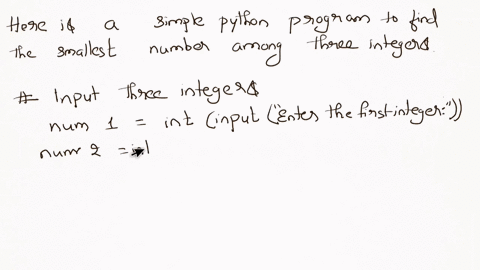 Here is a simple python program to find
the smallest number among three integers
# Input three integers
num 1 = int (input ("Enter the first integer:"))
num 2 = int